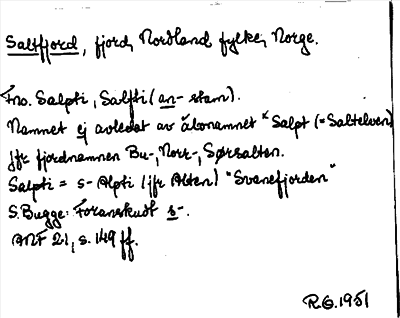 Saltfjord, fjord, Nordland fylke, Norge.
Fno. Salpti, Salfti (an-stam).
Namnet ej avledat av älvnamnet *Salpt (=Saltelven)
Jfr fjordnamnen Bu-, Norr-, Sørsalten.
Salpti = s-Alpti (jfr Alten) "Svanefjorden"
S. Bugge: Foranskudt s-.
ANF 21, s. 149 ff.
R.G. 1951